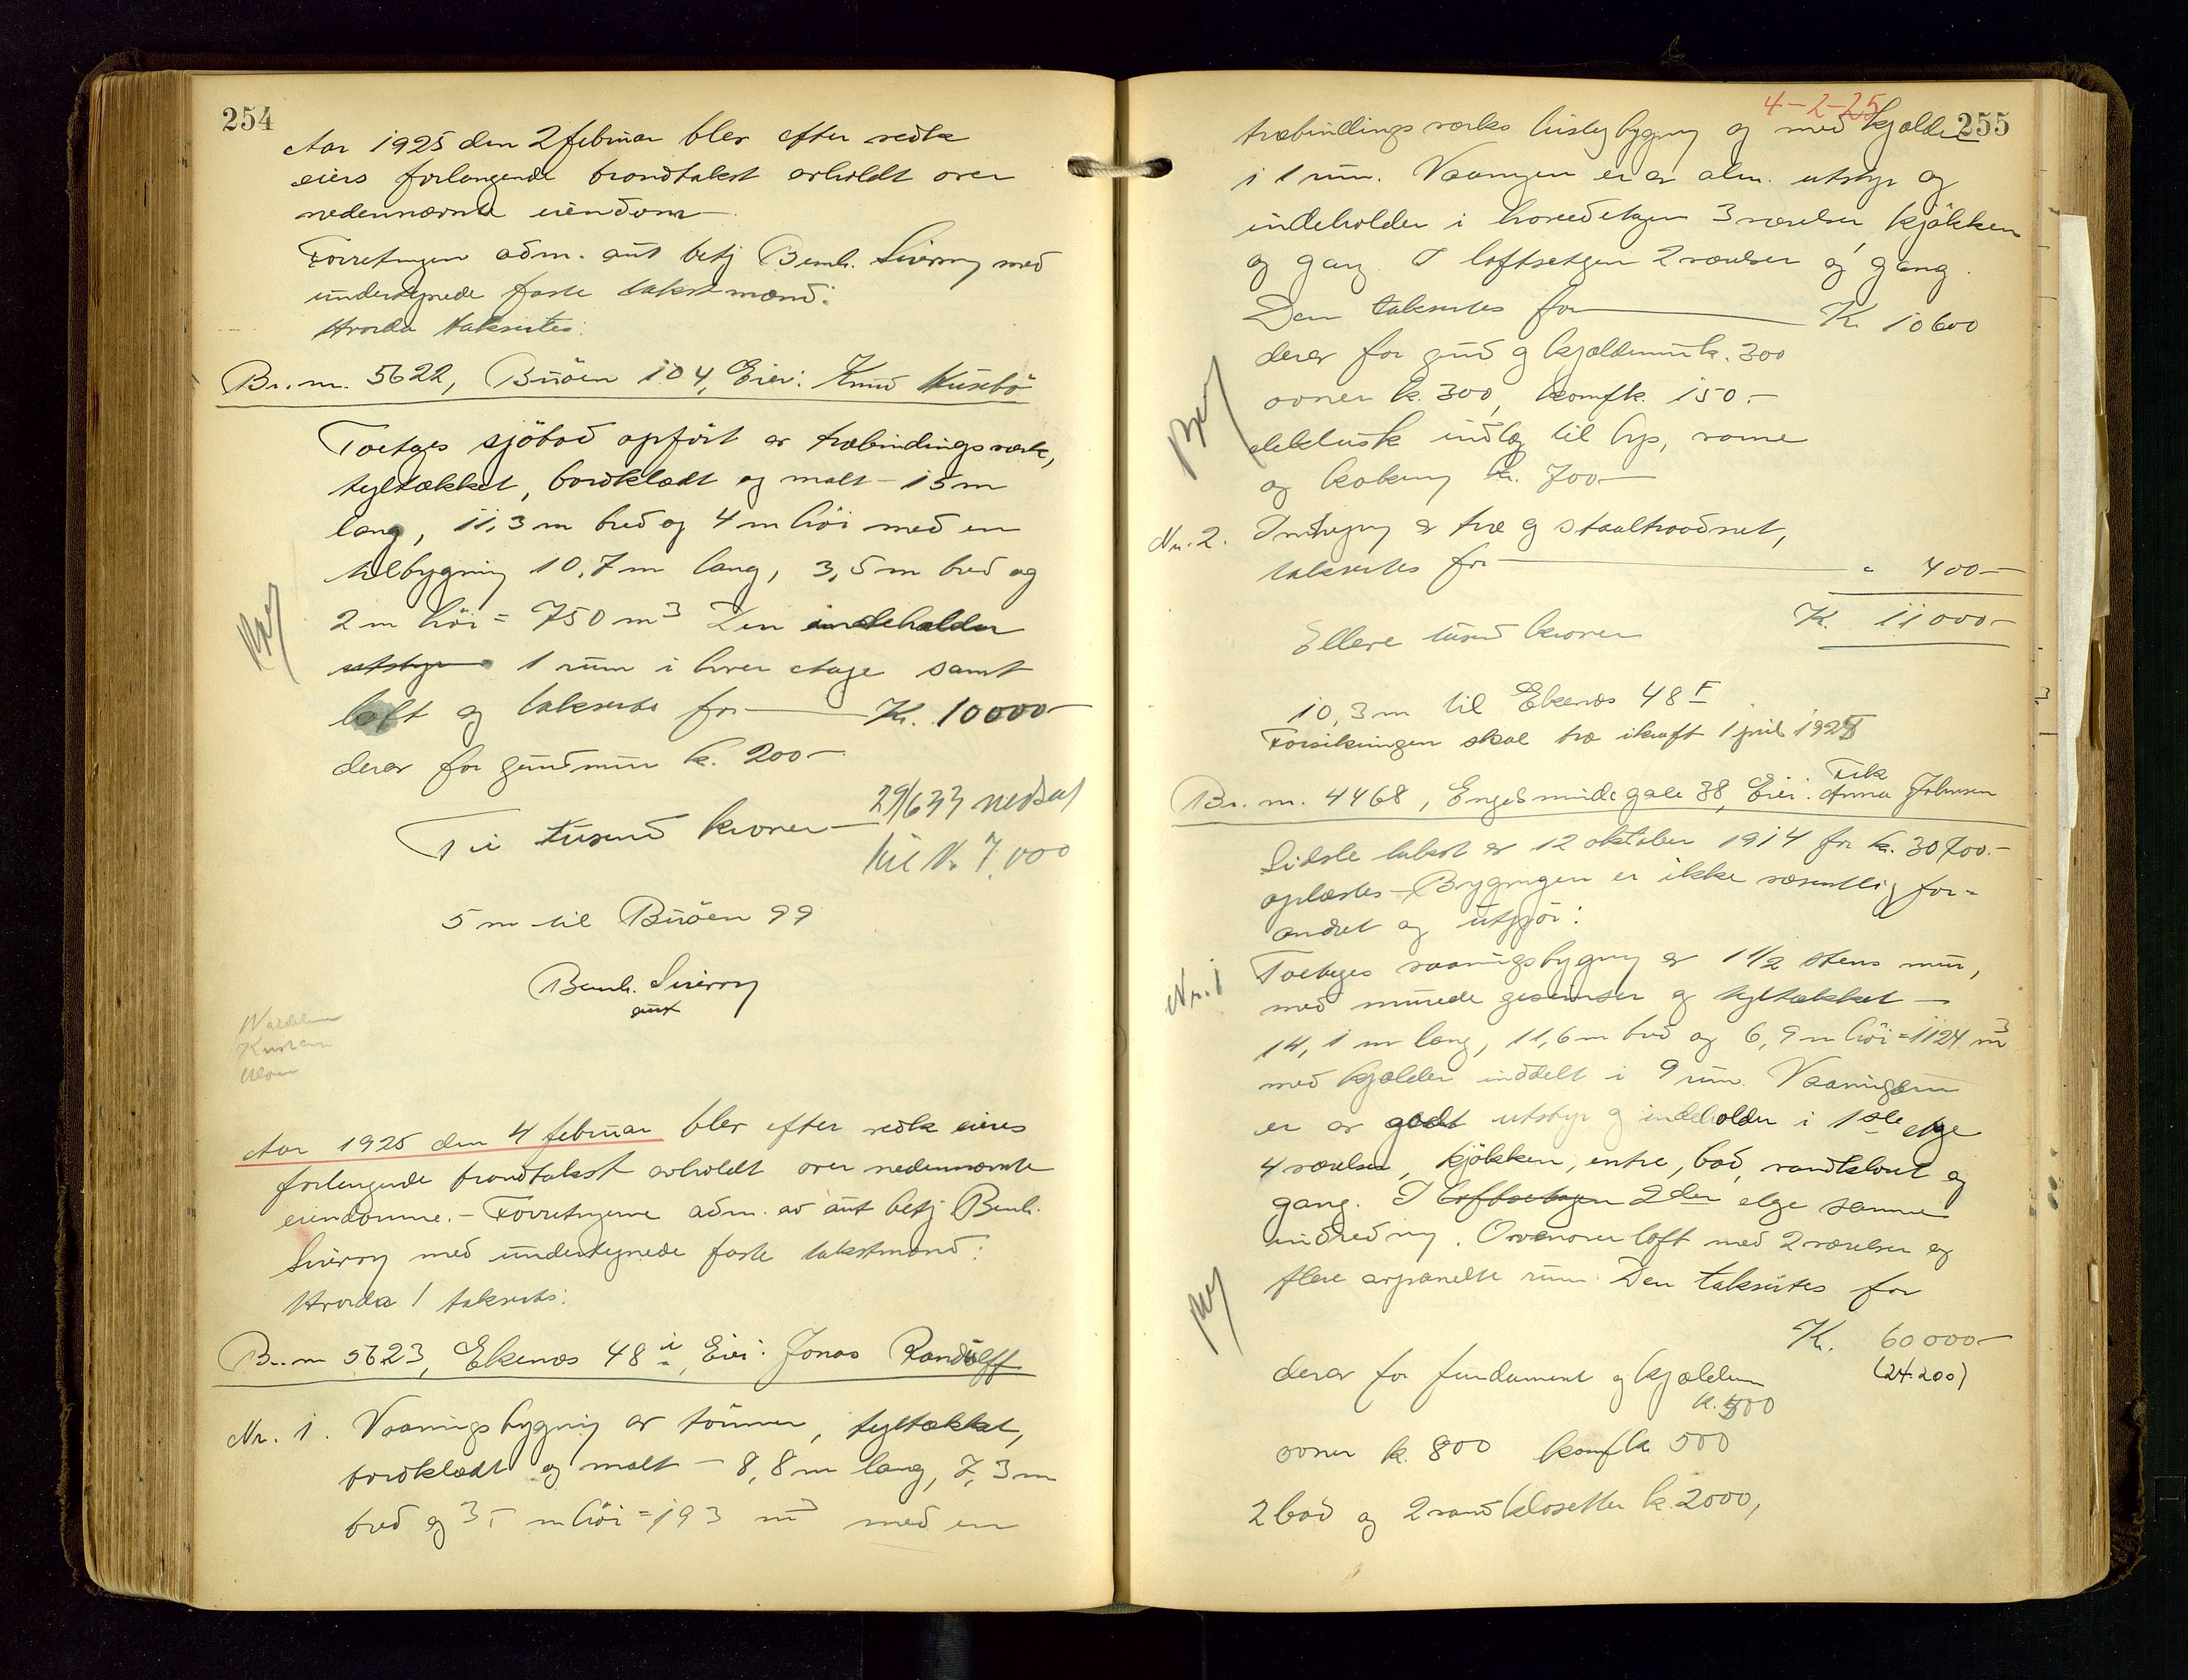 254
Aar 1925 den 2 februar blev efter vedk
eiers forlangende brandtakst avholdt over
nedennævnte eiendom
Forretningen adm. aut betj Bernh. Siversy med
undertegnede faste takstmænd:
Hvorda takseres:
Br. nr. 5622, Buöen 104, Eier: Knud Husebö
Toetages sjöbod opfört av træbindingsverk,
tegltækket, bordklædt og malt – 15 m
lang, 11,3 m bred og 4 m höi med en
tilbygning 10,7 m lang, 3,5 m bred og
2 m höi = 750 m3 Den indeholder
1 rum i hver etage samt
loft og takseres for Kr. 10000–
derav for grundmur k. 200–
Ti tusend kroner
29/6 33 nedsat
til Kr 7.000
5 m til Buöen 99
Bernh.
aut
Aar 1925 den 4 februar blev efter vedk eieres
forlangende brandtakst avholdt over nedennævnte
eiendomme. – Forretningerne adm. av aut betj Bernh.
med undertegnede faste takstmænd:
Hvorda takseres:
Br. nr 5623, Ekenæs 48 i, Eier: Jonas Randulff
Nr. 1. Vaaningsbygning av tömmer, tegltækket,
bordklædt og malt – 8,8 m lang, 7,3 m
bred og 3, m höi = 193 m3 med en
4-2-25
255
træbindingsverks bislagbygning og med kjælder
i 1 rum. Vaaningen er av alm. utstyr og
indeholder i hovedetagen 3 værelser kjökken
og gang. I loftsetagen 2 værelser og gang.
Den takseres for K. 10600
derav for grund og kjældermur k. 300
ovner k. 300, komf k. 150.–
elektrisk indlæg til lys, varme
og kokning k. 700–
Nr. 2. Indhegning av træ og staaltraadnet,
takseres for " 400–
K. 11000–
Elleve tusend kroner
10,3 m til Ekenæs 48 F
Forsikringen skal træ ikraft 1 april 1925
Br. nr. 4468, Engelsmindegate 38, Eier: Frk Anna Johnsen
Sidste takst av 12 oktober 1914 for k. 30700.–
oplæstes – Bygningen er ikke væsentlig for-
andret og utgjör:
Nr. 1 Toetages vaaningsbygning av 1 1/2 stens mur,
med murede gesimser og tegltækket –
14,1 m lang, 11,6 m bred og 6,9 m höi = 1124 m3
med kjælder inddelt i 9 rum. Vaaningerne
er av godt utstyr og indeholder i 1ste etge
4 værelser, kjökken, entre, bad, vandkloset og
gang. I loftsetagen 2den etge samme
indredning. Ovenover loft med 2 værelser og
flere avpanelte rum. Den takseres for
K. 60000–
(24.200)
derav for fundament og kjældermur
k. 500
ovner k. 800 komf k. 500
2 bad og 2 vandklosetter k. 2000,